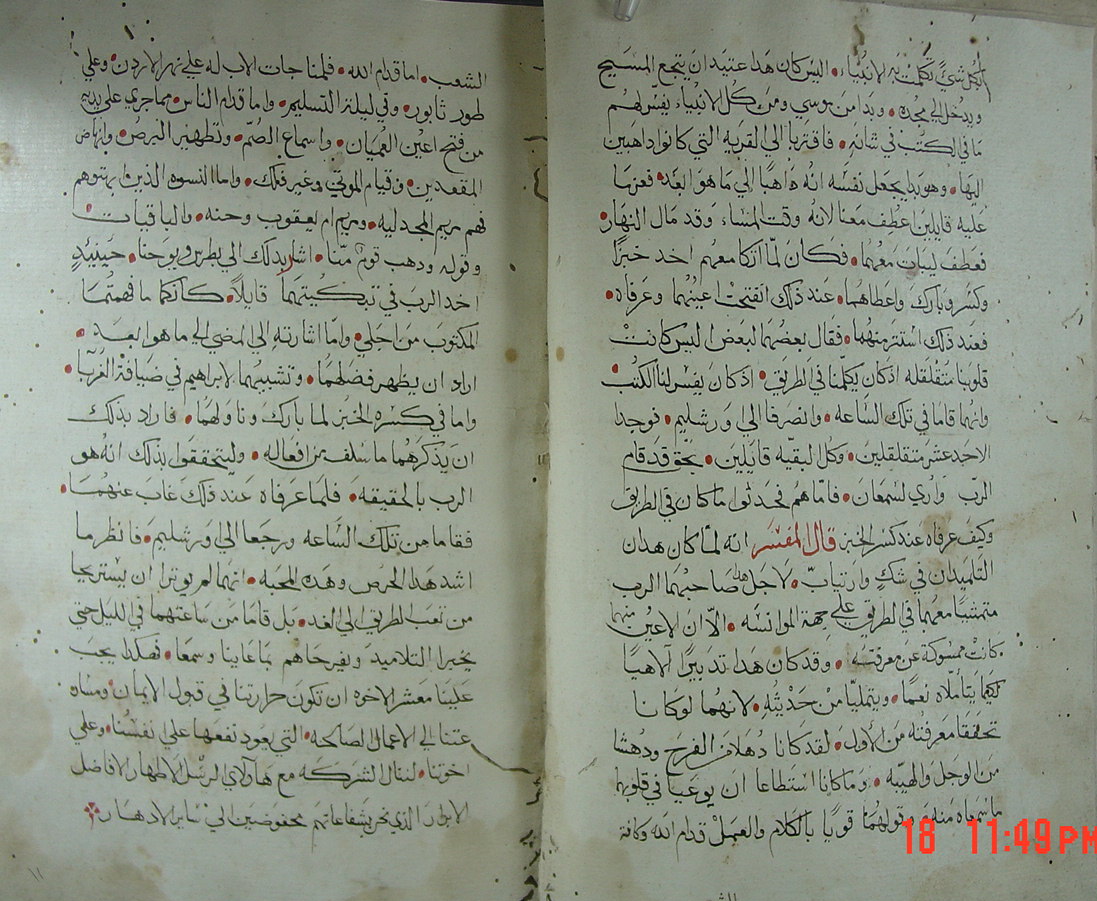 لكل شيٍ تكلمت به الانبياء • اليس كان هدا عتيد ان يتجع المسيح
ويدخل الي مجده • وبدا من موسي ومن كل الانبياء يفسر لهم
ما في الكتب في شانه • فاقتربا الي القريه التي كانوا داهبين
اليها • وهو بدا يجعل نفسه انه داهبًا الي ما هو ابعد • فعزما
عليه قايلين اعطف معنا لانه وقت المساء وقد مال النهار •
فعطف ليبات معهما • فكان لمّا اتكا معهم اخد خبزًا
وكسر وبارك واعطاهما • عند ذلك انفتحت اعينهما وعرفاه •
فعند ذلك استتر منهما • فقال بعضهما لبعض اليس كانت
قلوبنا متقلقله اذ كان يكلمنا في الطريق • اذ كان يفسر لنا الكتب
وانهما قاما في تلك الساعه • وانصرفا الي اورشليم • فوجدا
الاحد عشر متقلقلين • وكل البقيه قايلين • بحق قد قام
الرب واري لسمعان • فاما هم فحدثوا ما كان في الطريق
وكيف عرفاه عند كسر الخبز قال المفسر انه لما كان هدان
التلميدان في شك وارتياب • لاجل هدا صاحبهما الرب
متمشيًا معهما في الطريق علي جهة الموانسه • الا ان الاعين منهما
كانت ممسوكة عن معرفته • وقد كان هدا تدبيرًا الاهيًا
لكيما يتاملاه نعمًا • ويتمليا من حديثه • لانهما لو كانا
تحققا معرفته من الأول • لقد كانا دهلا من الفرح ودهشا
من الوجل والهيبه • وما كانا استطاعا ان يوعيا في قلوبهما
ما سمعاه منه • وقولهما قويًا بالكلام والعمل قدام الله وكافة
الشعب • اما قدام الله • فلمناجات الاب له علي نهر الاردن • وعلي
طور ثابور • وفي ليلة التسليم • واما قدام الناس • مما جري علي يديه
من فتح اعين العميان • واسماع الصّم • وتطهير البرص • وانهاض
المقعدين • وقيام الموتي وغير ذلك • واما النسوه الذين اربتوهم
فهم مريم المجدليه • ومريم ام يعقوب وحنه • والباقيات •
وقوله ودهب قوم منّا • اشار بدلك الي بطرس ويوحنا • حينيدٍ
اخد الرب في تبكيتهما قايلاً • كانكما ما فهمتما
المكتوب من اجلي • وامّا اشارته الي المضي الي ما هو ابعد •
اراد ان يظهر فضلهما • وتشبيههما لابراهيم في ضيافة الغربا •
واما في كسره الخبز لما بارك وناولهما • فاراد بدلك
ان يذكرهما ما سلف من افعاله • وليتحققوا بذلك انه هو
الرب بالحقيقه • فلما عرفاه عند ذلك غاب عنهما •
فقاما من تلك الساعه ورجعا الي اورشليم • فانظر ما
اشد هدا الحرص وهده المحبه • انهما لم يوثرا ان يستريحا
من تعب الطريق الي الغد • بل قاما من ساعتهما في الليل حتي
يخبرا التلاميد ويفرحاهم بما عاينا وسمعا • فهكدا يجب
علينا معشر الاخوه ان تكون حرارتنا في قبول الايمان ومسا
عتنا الي الاعمال الصالحه • التي يعود نفعها علي نفسنا • وعلي
اخوتنا • لننال الشركه مع هاولاي الرسل الاطهار الافاضل
الابرار الذي نحن بشفاعاتهم محفوضين الي ساير الادهار
18 11:49 PM